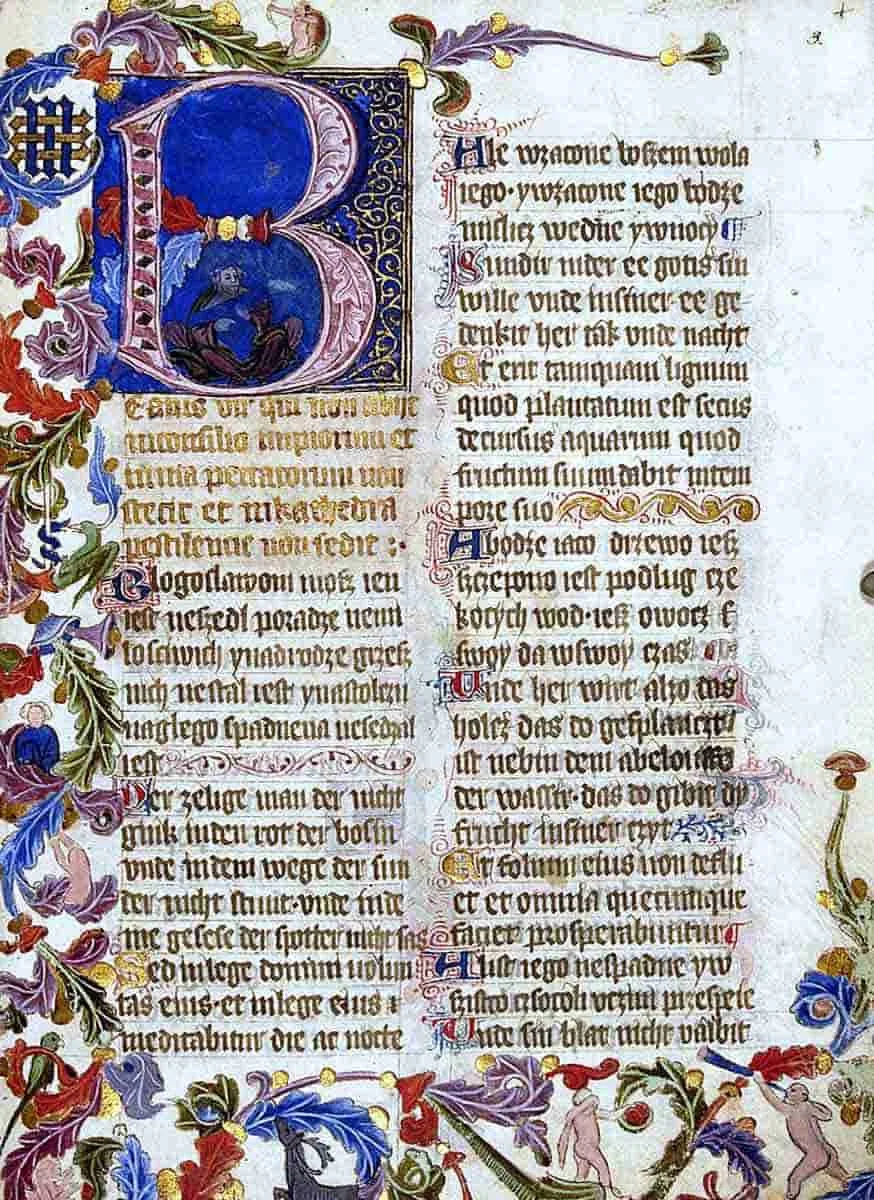 B
eatus vir qui non abijt
inconsilio impiorum et
inuia peccatorum non
stetit et inkathedra
pestilencie non sedit :·
Blogoslawoni mosz ien
iest neszedl poradze nemi
losciwich ynadrodze grzesz
nich nestal iest ynastolczu
naglego spadnena nesedzal
iest
Der zelige man der nicht
gink inden rot der bosin
vnde indem wege der sun
der nicht stunt·vnde inde
me gesese der spotter nicht sas
Sed inlege domini volun
tas eius·et inlege eius
meditabitur die ac nocte
Ale wzacone boszem wola
iego·ywzacone iego bodze
mislicz wedne ywnocy
Sundir inder ee gotis sin
wille vnde insiner ee ge
denkit her tak vnde nacht
Et erit tamquam lignum
quod plantatum est secus
decursus aquarum quod
fructum suum dabit intem
pore suo
Abodze iaco drzewo iesz
szczepono iest podlug cze
kocych wod·iesz owocz
swoy da wswoy czas
Unde her wirt alzo das
holcz das do gesplanczt
ist nebin dem abeloufe
der wassir·das do gibit dy
frucht insiner czyt
Et folium eius non deflu
et et omnia quecumque
faciet prosperabuntur
Alist iego nespadne yw
szistco csocoli vczini przespeie
Unde sin blat nicht valbit